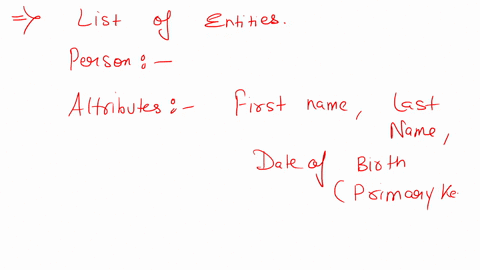 => List of Entities.
Person :-
Attributes :- First name, Last
Name,
Date of Birth
(Primary Ke